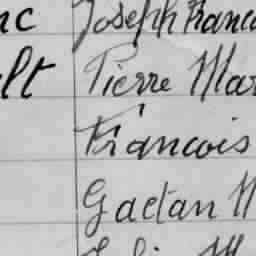 nc Joseph Franco
lt Pierre Mar
François
Gaetan